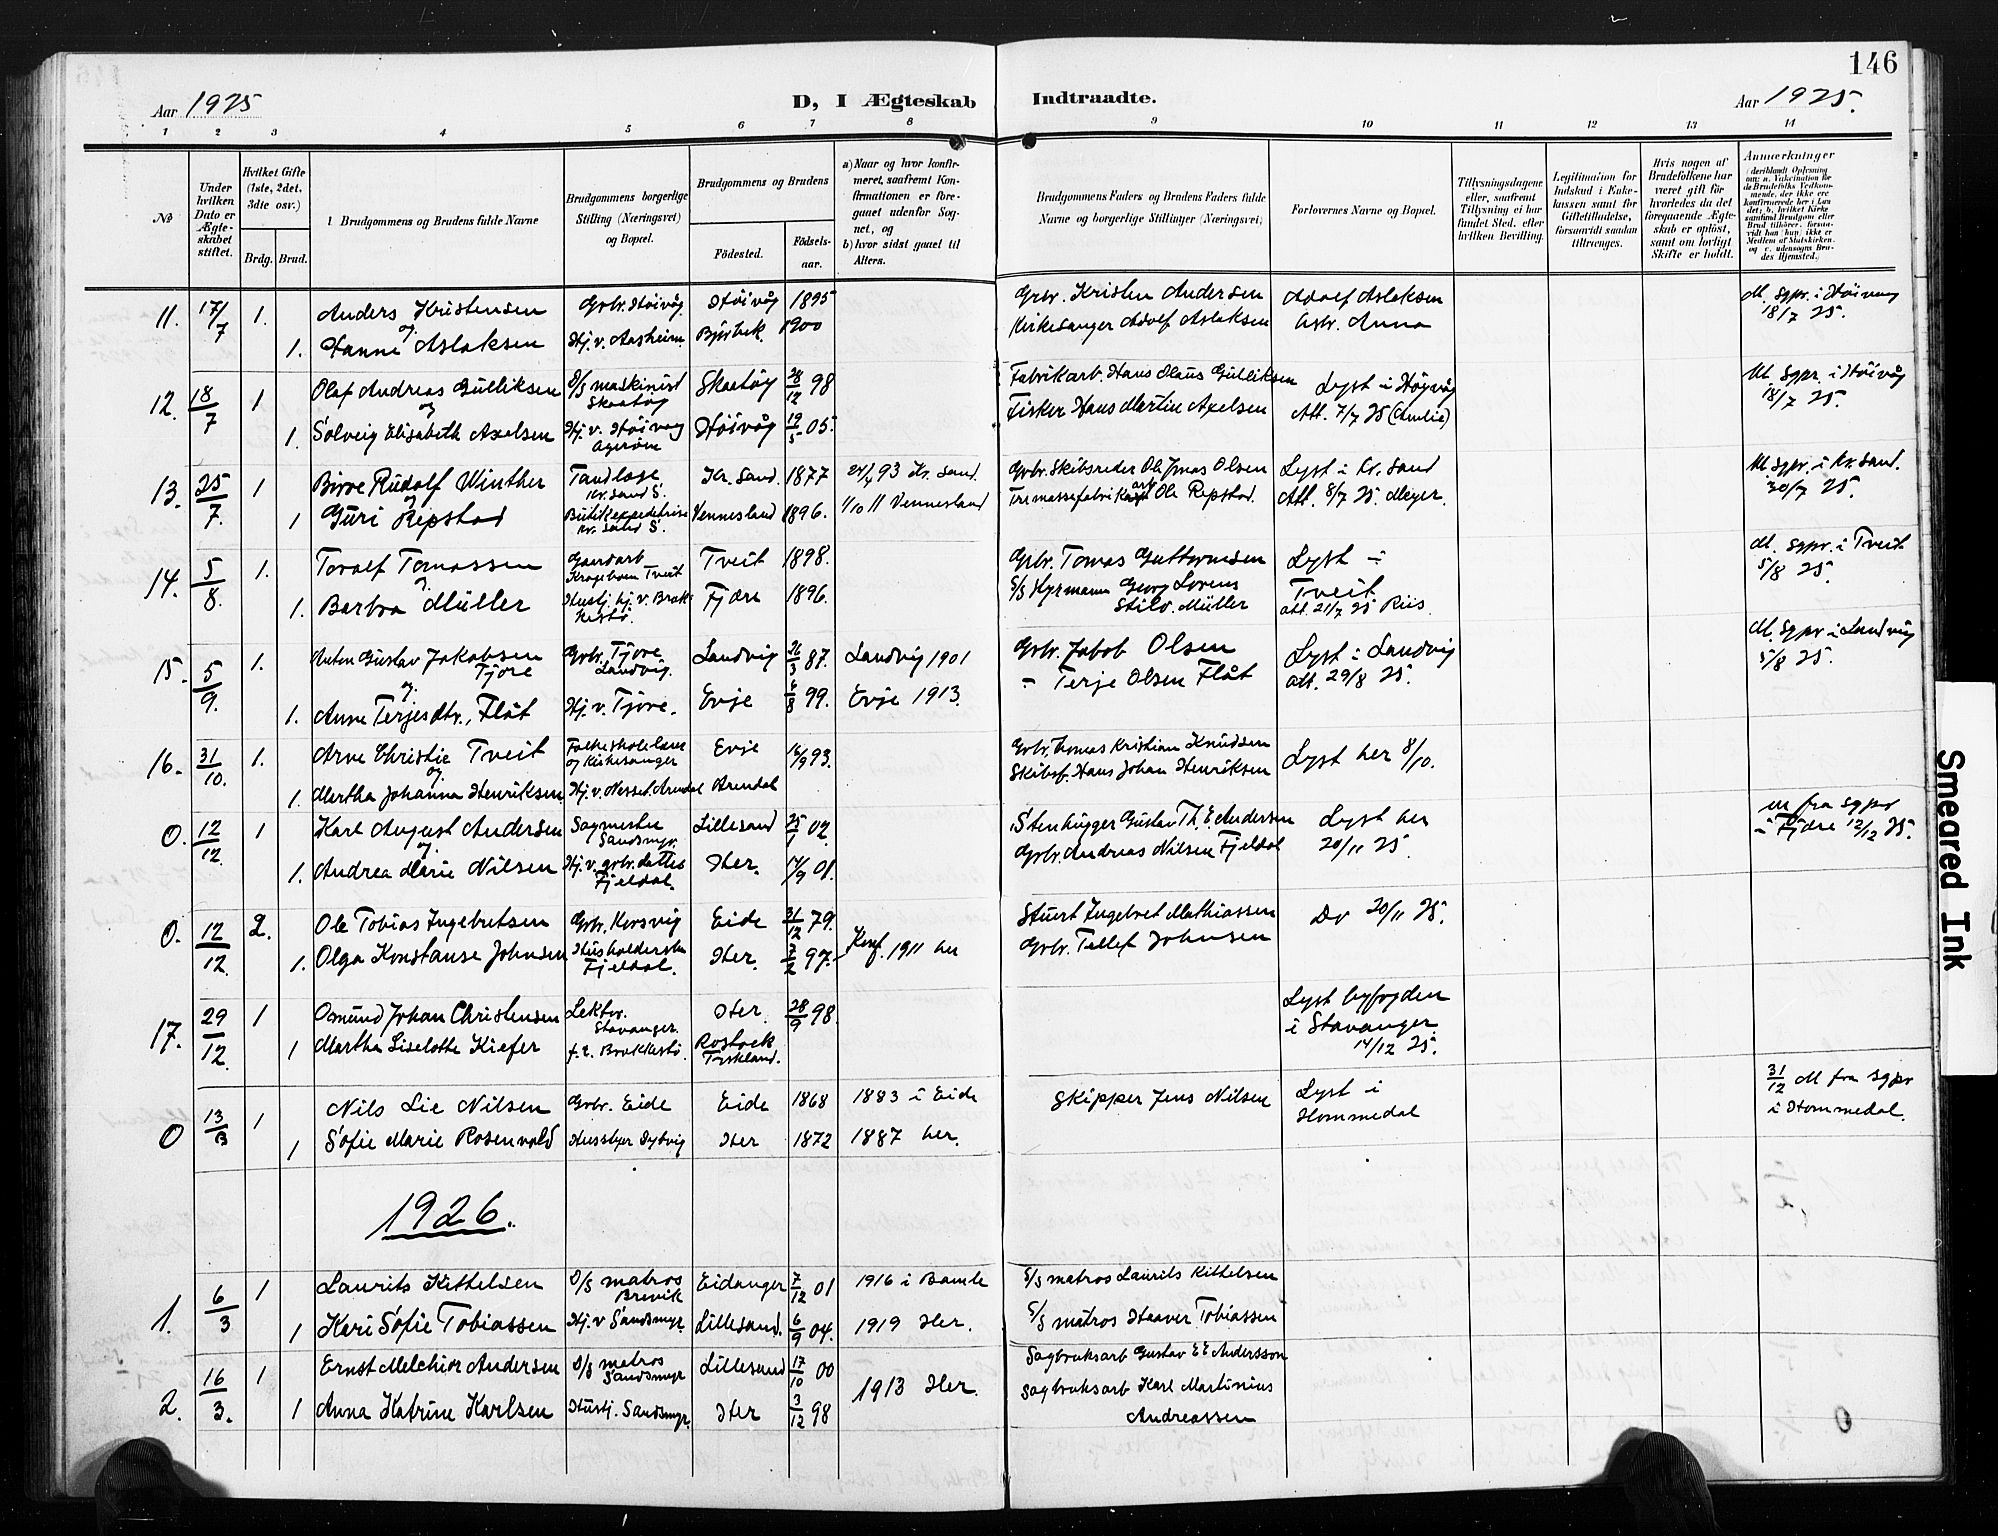 146
Aar 1925
D, I Ægteskab Indtraadte.
Aar 1925.
1 2 3 4 5 6 7 8 9 10 11 12 13 14
No
Under hvilken Dato er Ægteskabet stiftet.
Hvilket Gifte (1ste, 2det, 3dte osv.)
Brdg. Brud.
1. Brudgommens og Brudens fulde Navne
Brudgommens borgerlige Stilling (Næringsvei) og Bopæl.
Brudgommens og Brudens
Fødested.
Fødselsaar.
a) Naar og hvor konfirmeret, saafremt Konfirmationen er foregaaet udenfor Sognet, og
b) hvor sidst gaaet til Alters.
Brudgommens Faders og Brudens Faders fulde Navne og borgerlige Stillinger (Næringsvei)
Forlovernes Navne og Bopæl.
Tillysningsdagene eller, saafremt Tillysning ei har fundet Sted, efter hvilken Bevilling.
Legitimation for Indskud i Enkekassen samt for Giftetilladelse, forsaavidt saadan tiltrænges.
Hvis nogen af Brudefolkene har været gift før hvorledes da det foregaaende Ægteskab er opløst, samt om lovligt Skifte er holdt.
Anmerkninger
(deriblandt Oplysning om: a. Vakcination for de Brudefolks Vedkommende, der ikke ere konfirmerede her i Landet; b. hvilket Kirkesamfund Brudgom eller Brud tilhører, forsaavidt han (hun) ikke er Medlem af Statskirken, og c. udensogns Brudes Hjemsted.)
11. 17/7 1. Anders Kristensen Grbr. Høivåg Høivåg 1895 Grbr. Kristen Andersen Adolf Aslaksen M. sgpr. i Høivåg
og 18/7 25.
1. Hanne Aslaksen Hj. v. Aasheim Bjørbek. 1900 Kirkesanger Adolf Aslaksen Anna
12. 18/7 1 Olaf Andreas Gulliksen D/S maskinist Skaatøy Skaatøy 28/12 98 Fabrikarb. Hans Olaus Gulliksen Lyst i Høyvåg M. sgpr. i Høivåg
og 18/7 25.
1. Solveig Elisabeth Axelsen Hj. v. Høivåg Agerøen Høivåg 19/5 05. Fisker Hans Martin Axelsen Att. 7/7 25
13. 25/7. 1 Birre Rudolf Winther Tandlæge Kr. sand S. Kr. Sand. 1877 24/4 93 Kr. sand. Grbr. Skibsreder Ole Jonas Olsen Lyst i Kr. Sand M sgpr. i Kr. sand.
og 30/7 25.
1 Guri Repstad Butikexpeditrise Kr. sand S. Vennesland 1896. 1/10 11 Vennesland Tremassefabrikarb Ole Repstad. Att. 8/7 25 Meyer.
14. 5/8. 1. Toralf Tomassen Gaardarb Tveit Tveit 1898. Grbr. Tomas Guttormsen Lyst i M. sgpr. i Tveit
og. 5/8 25.
1. Barbra Müller Hustj. hj. v. Brekkestø. Fjære 1896. S/S styrmann Georg Lorens Müller Tveit
att. 21/7 25 Riis.
15. 5/9. 1. Anton Gustav Jakobsen Tjore Grbr. Tjore Landvig. Landvig 26/3 87. Landvig 1901 Grbr. Jakob Olsen Lyst i Landvig M. sgpr i Landvig
og. 5/8 25.
1. Anne Terjesdtr. Flåt Hj. v. Tjore. Evje 6/8 99. Evje 1913. - Terje Olsen Flåt att. 29/8 25.
16. 31/10. 1. Arne Christie Tveit Folkeskolelærer og Kirkesanger Evje 93. Grbr. Thomas Kristian Knudsen Lyst her 8/10.
og
1. Martha Johanna Henriksen Hj. v. Nesset. Arendal Arendal Skibsf. Hans Johan Henriksen
0. 12/12. 1 Karl August Andersen Sagmester Sandsmyr. Lillesand 25/1 02. Stenhugger Gustav Th. E. Andersen Lyst her m fra sgpr
og. 20/11 25. i Fjære 12/12 25.
1. Andrea Marie Nilsen Hj. v. grbr. dattes Fjeldal. Her. 01. Grbr. Andreas Nilsen Fjeldal
0. 12/12. 2. Ole Tobias Ingebretsen Grbr. Kosvig Eide 31/12 79. Stuert Ingebret Mathiassen Do 20/11 25.
1. Olga Konstanse Johnsen Husholderske Fjeldal. Her. 7/2 97. Konf. 1911 her Grbr. Tellef Johnsen
17. 29/12. 1 Osmund Johan Christensen Lektor. Stavanger. Her. 28/9 98. Lyst byfogden
i Stavanger
14/12 25.
1 Martha Liselotte Kiefer f. t. Brekkestø. Rostock Tyskland.
0 13/ 1 Nils Lie Nilsen Grbr. Eide Eide 1868 1883 i Eide Skipper Jens Nilsen Lyst i 31/12 M fra sgpr
Hommedal i Hommedal.
1 Sofie Marie Rosenvold Her 1872 1887 her.
1926.
1. 6/3 1 Laurits Kittelsen D/S matros Brevik Eidanger 7/12 01 1916 i Bamle S/S matros Laurits Kittelsen
1 Kari Sofie Tobiassen Hj. v Sandsmyr. Lillesand. 6/9 04. 1919 Her. S/S matros Haaver Tobiassen
2. 16/3. 1 Ernst Melchior Andersen D/S matros Sandsmyr Lillesand 17/10 00 Sagbruksarb Gustav E E Andersson
1 Anna Katrine Karlsen Hustj. Sandsmyr. Her 3/12 98 1913 Her. Sagbruksarb Karl Martinius
Andreassen
0
Smeared Ink